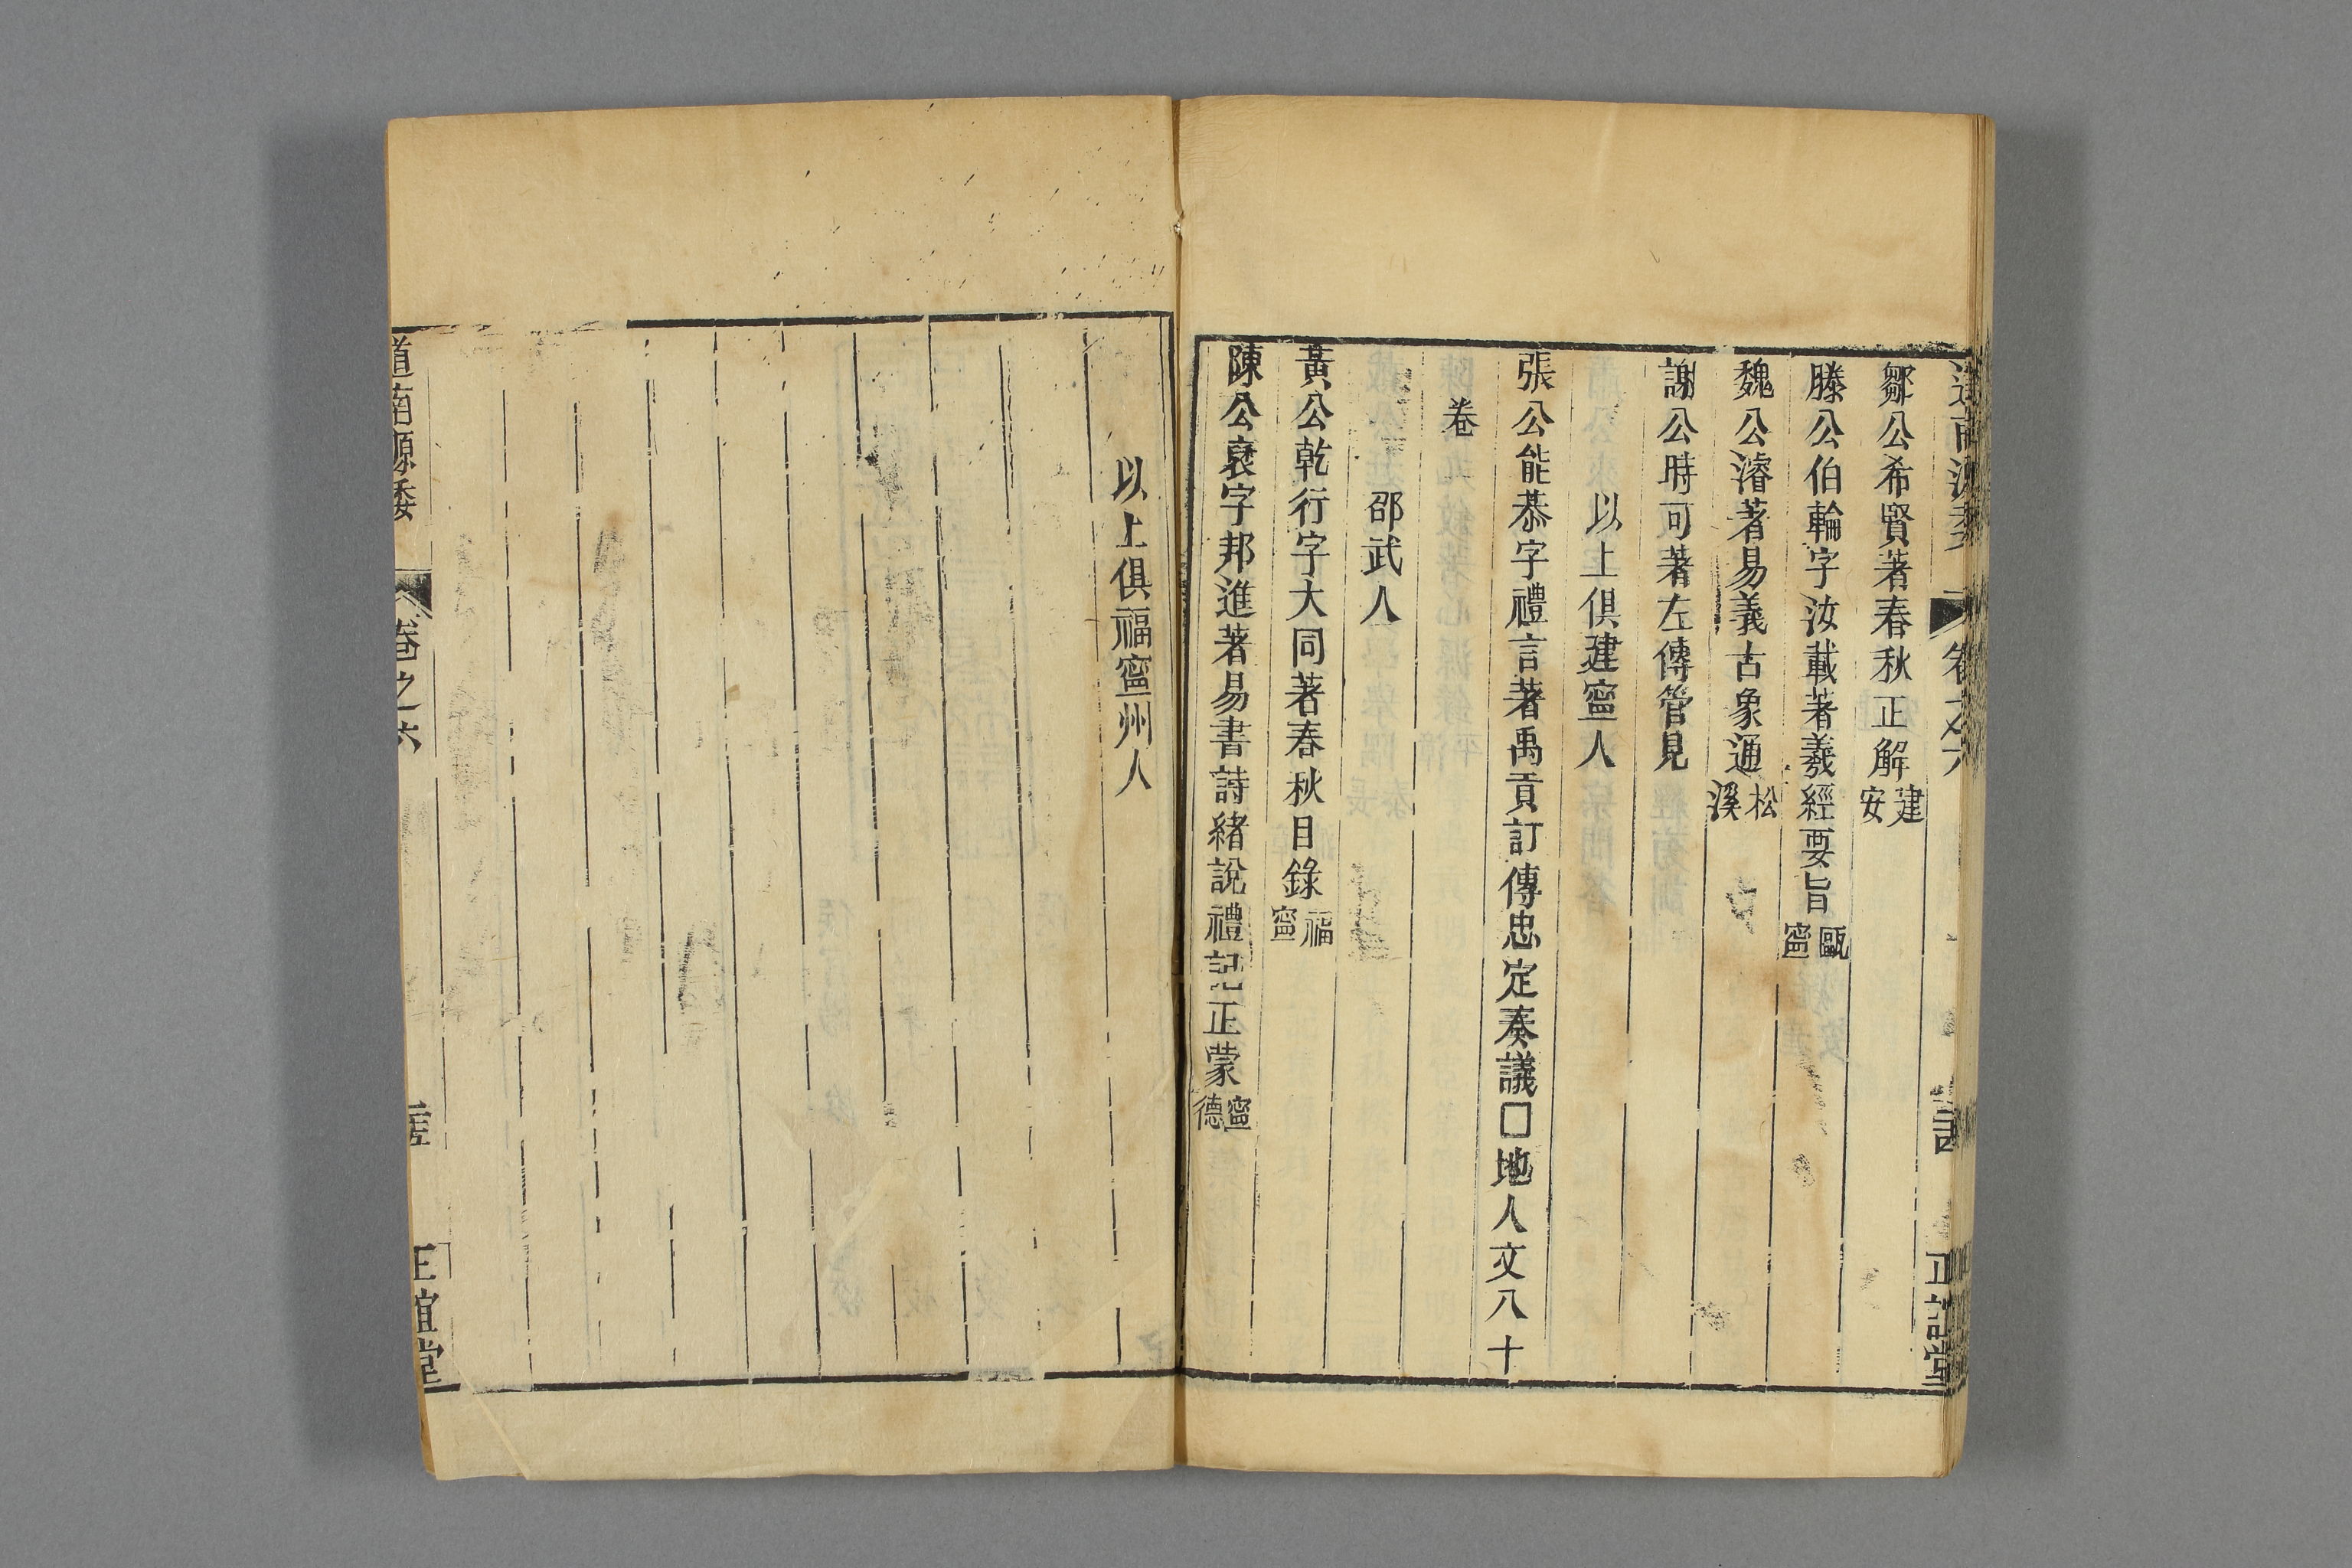 鄒公希賢著春秋正解建安
滕公伯輪字汝載著羲經要旨甌寧
魏公濬著易義古象通松溪
謝公時可著左傳管見
以上俱建寧人
張公能恭字禮言著禹貢訂傳忠定奏議□地人文八十
卷
邵武人
黃公乾行字大同著春秋日錄福寧
陳公褎字邦進著易書詩緒說禮記正蒙寧德
以上俱福寧州人
道南源委
卷之六
正誼堂